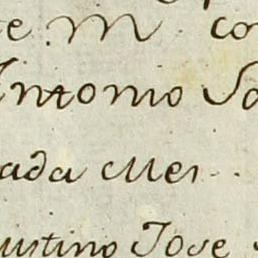 e m co
Antonio So
ada Mes
ustino Jose